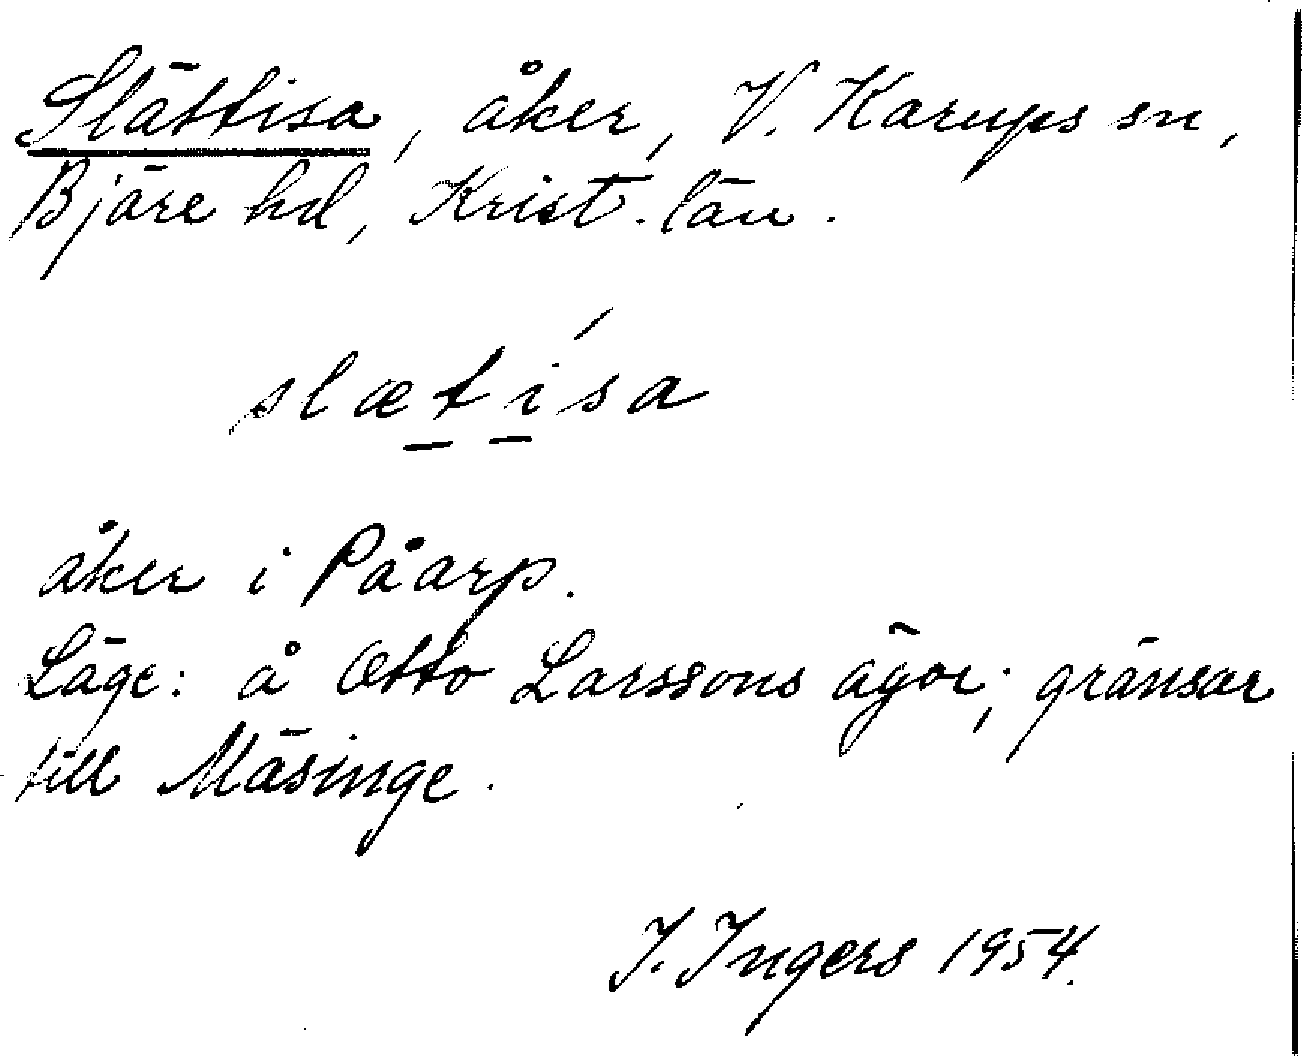 Slättisa, åker, V. Karups sn,
Bjäre hd, Krist. län.
slætísa
åker i Påarp.
Läge: å Otto Larssons ägor; gränsar
till Mäsinge.
I. Ingers 1954.